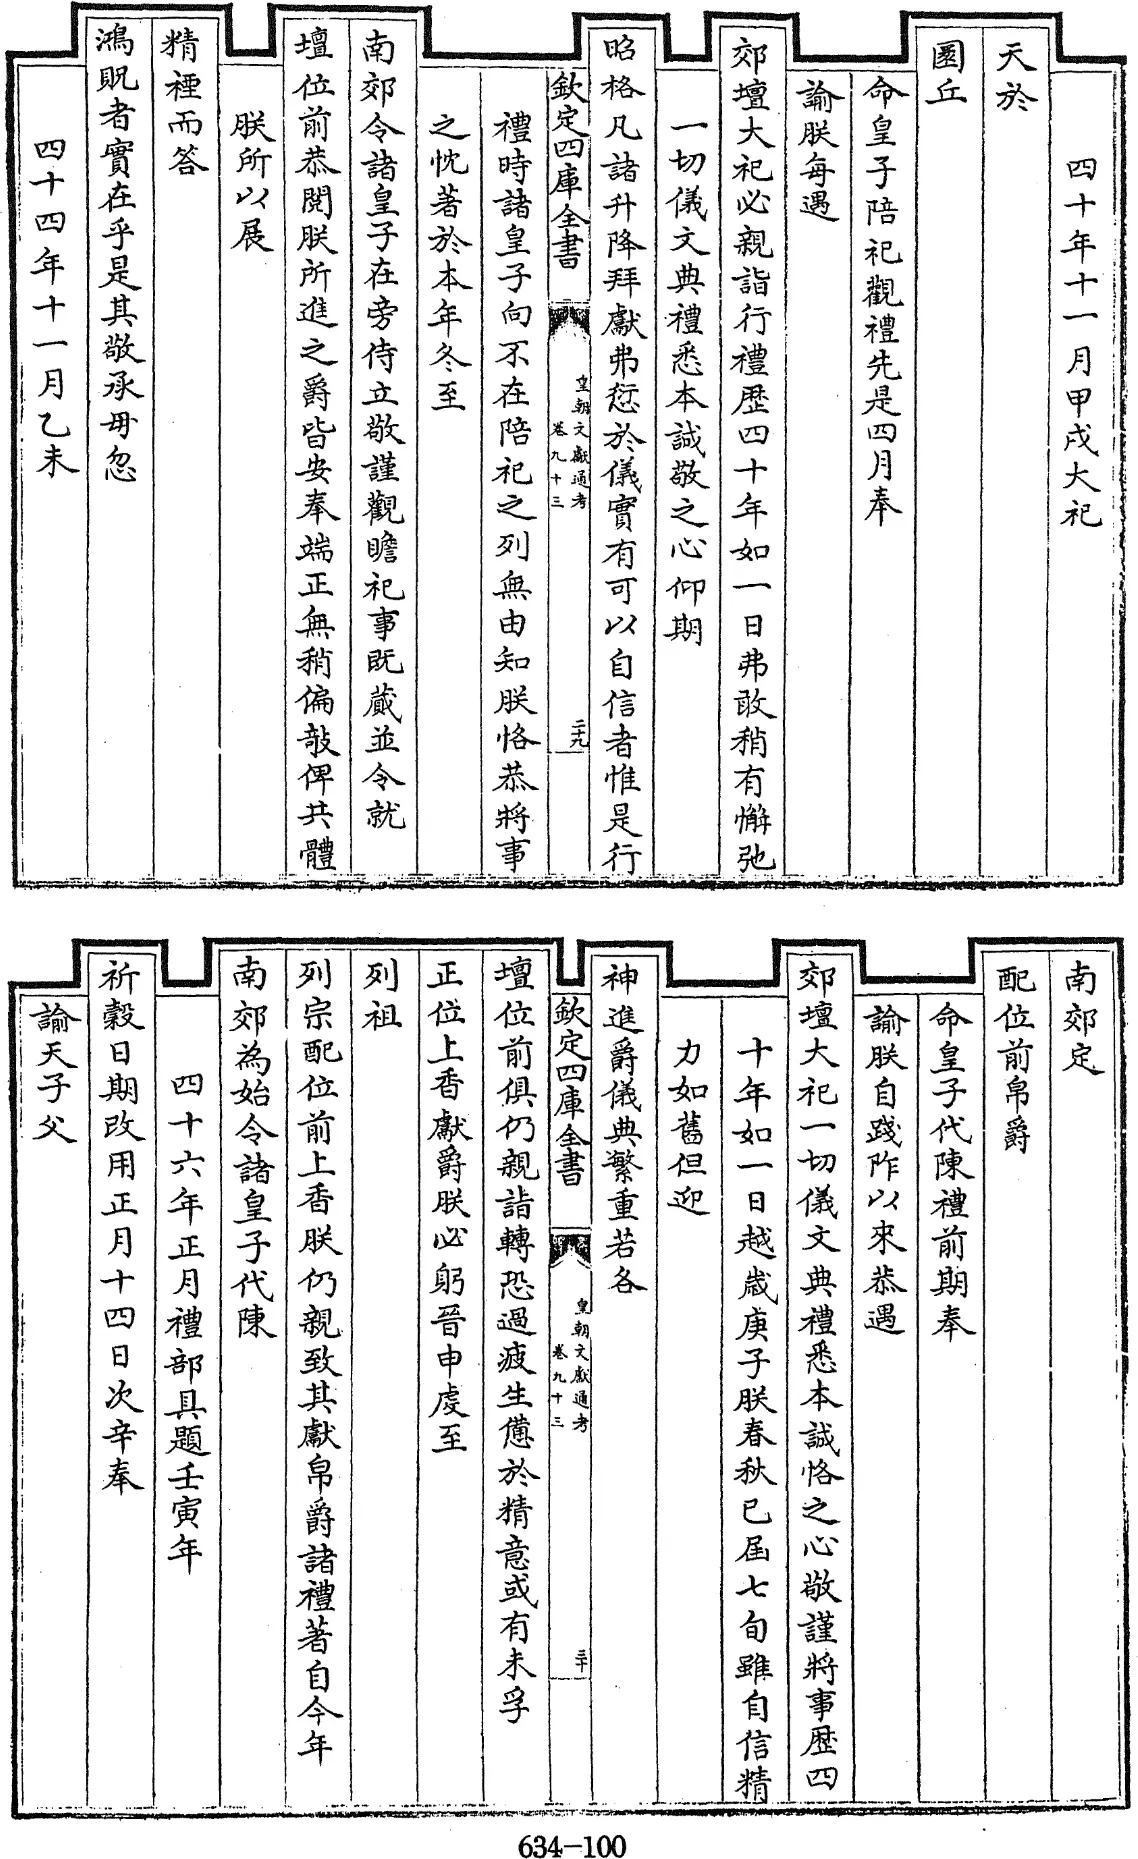 四十年十一月甲戌大祀
天於
圜丘
命皇子陪祀觀禮先是四月奉
諭朕每遇
郊壇大祀必親詣行禮歷四十年如一日弗敢稍有懈弛
一切儀文典禮悉本誠敬之心仰期
昭格凡諸升降拜獻弗愆於儀實有可以自信者惟是行
欽定四庫全書
皇朝文獻通考
卷九十三
二十九
禮時諸皇子向不在陪祀之列無由知朕恪恭將事
之忱著於本年冬至
南郊令諸皇子在旁侍立敬謹觀瞻祀事既蕆並令就
壇位前恭閱朕所進之爵皆安奉端正無稍偏敧俾共體
朕所以展
精禋而答
鴻貺者實在乎是其敬承毋忽
四十四年十一月乙未
南郊定
配位前帛爵
命皇子代陳禮前期奉
諭朕自踐阼以來恭遇
郊壇大祀一切儀文典禮悉本誠恪之心敬謹將事歷四
十年如一日越歲庚子朕春秋已屆七旬雖自信精
力如舊但迎
神進爵儀典繁重若各
欽定四庫全書
皇朝文獻通考
卷九十三
三十
壇位前俱仍親詣轉恐過疲生憊於精意或有未孚
正位上香獻爵朕必躬晉申虔至
列祖
列宗配位前上香朕仍親致其獻帛爵諸禮著自今年
南郊為始令諸皇子代陳
四十六年正月禮部具題壬寅年
祈穀日期改用正月十四日次辛奉
諭天子父
634-100